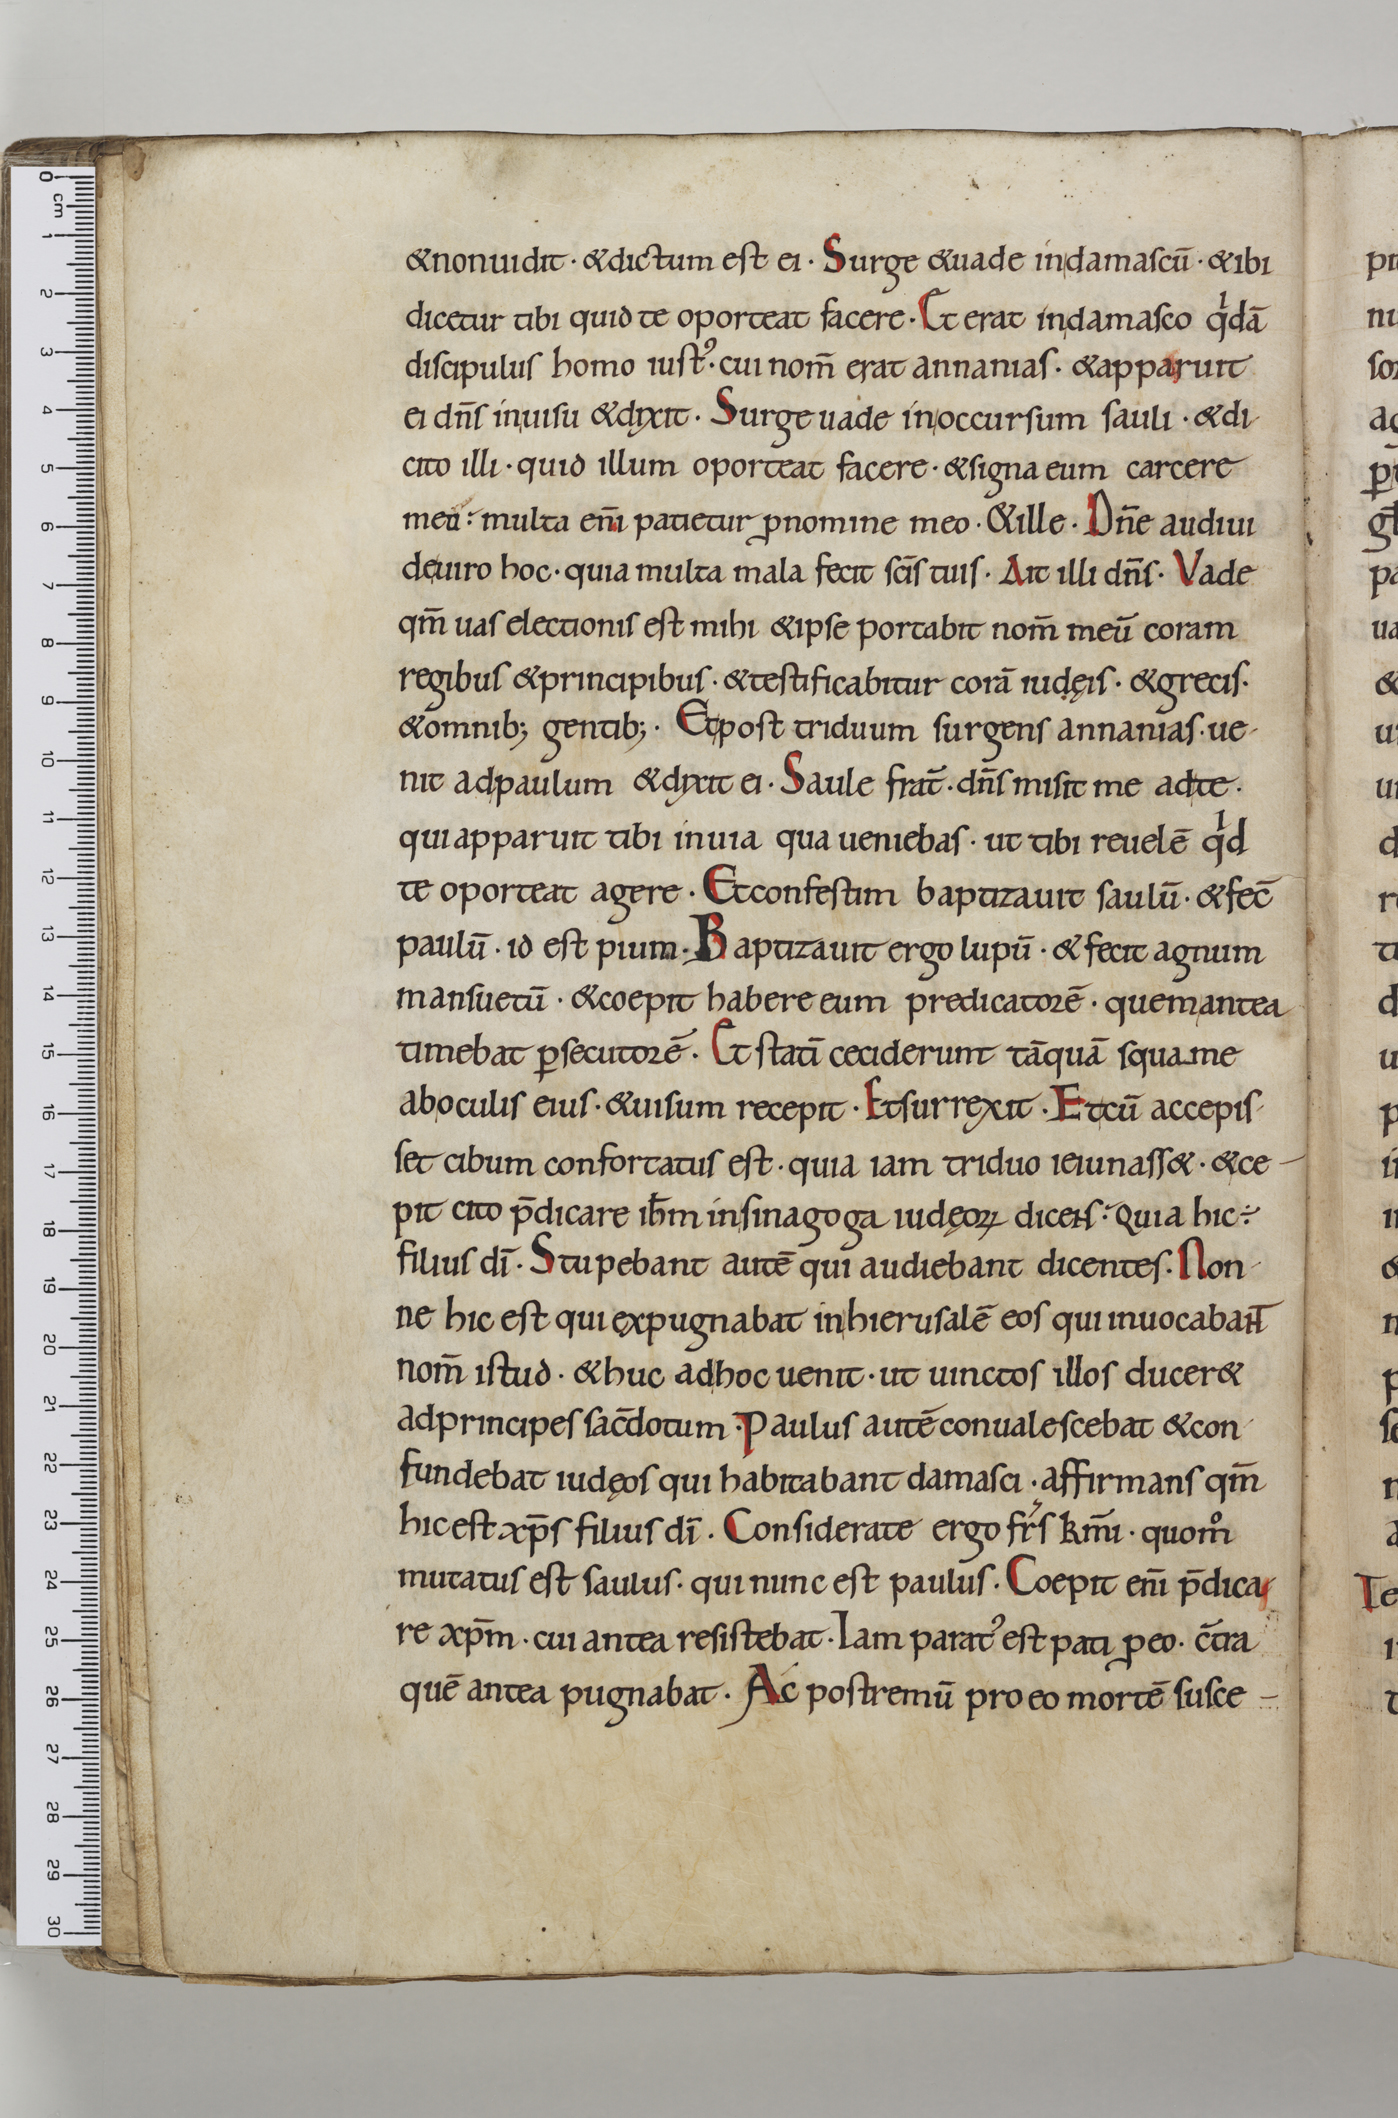 &nonuidit · &dictum est ei · Surge &uade indamascū · &ibi
dicetur tibi quid te oporteat facere · Et erat indamasco qͥdā
discipulus homo iustꝰ · cui nom̄ erat annanias · &apparuit
ei dn̄s inuisu &dixit · Surge uade inoccursum sauli · &di-
cito illi · quid illum oporteat facere · &signa eum carcere
meū · multa enī patietur ꝓnomine meo · &ille · Dn̄e audiui
deuiro hoc · quia multa mala fecit sc̄is tuis · Ait illi dn̄s · Vade
qm̄ uas electionis est mihi &ipse portabit nom̄ meū coram
regibus &principibus · &testificabitur corā iudęis · &grecis ·
&omnib; gentib; · Etpost triduum surgens annanias · ue-
nit adpaulum &dixit ei · Saule frat̄ · dn̄s misit me adte ·
qui apparuit tibi inuia qua ueniebas · ut tibi reuelē qͥd
te oporteat agere · Etconfestim baptizauit saulū · &fec̄
paulū · id est pium · Baptizauit ergo lupū · & fecit agnum
mansuetū · &coepit habere eum predicatorē · quemantea
timebat ꝑsecutorē · Et statī ceciderunt tāquā squame
aboculis eius · &uisum recepit · Etsurrexit · Etcū accepis-
set cibum confortatus est · quia iam triduo ieiunass& · &ce-
pit cito p̄dicare ih̄m insinagoga iudęoꝝ dicens · Quia hic ÷
filius dī · Stupebant autē qui audiebant dicentes · Non-
ne hic est qui expugnabat inhierusalē eos qui inuocabant
nom̄ istud · &huc adhoc uenit · ut uinctos illos ducer&
adprincipes sac̄dotum · Paulus autē conualescebat &con-
fundebat iudęos qui habitabant damasci · affirmans qm̄
hic est xp̄s filius dī · Considerate ergo fr̄s km̄i · quomͦ
mutatus est saulus · qui nunc est paulus · Coepit enī p̄dica-
re xp̄m · cui antea resistebat · Iam paratꝰ est pati ꝑeo · c̄tra
quē antea pugnabat · Ac postremū pro eo mortē susce-